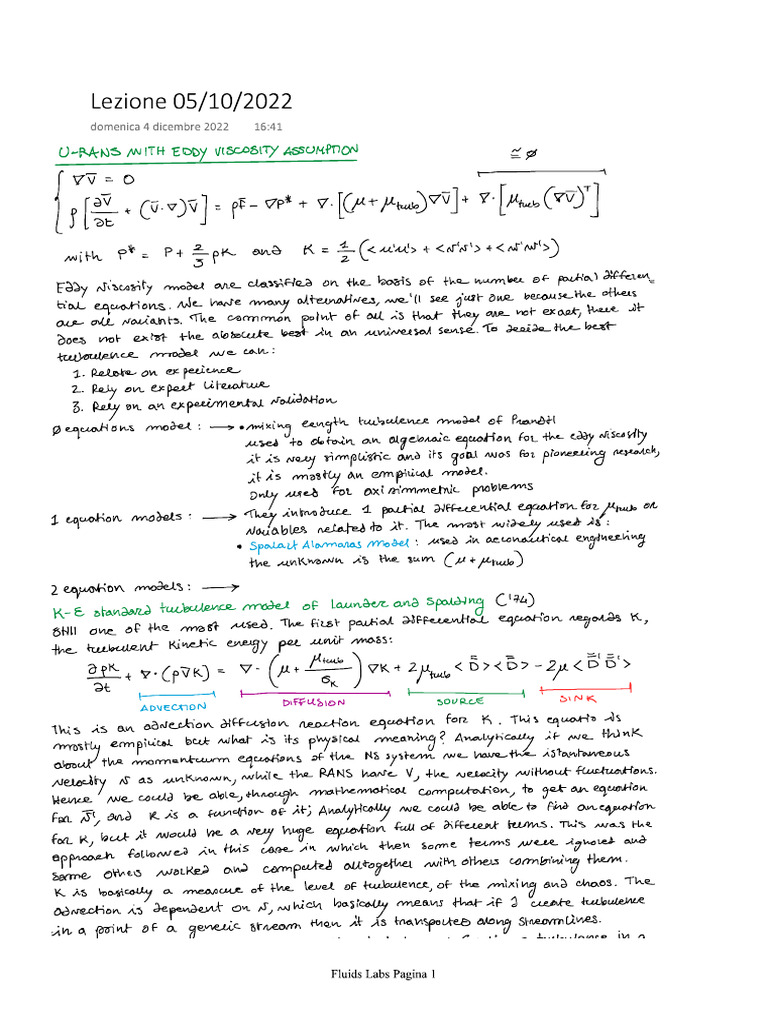 Lezione 05/10/2022
domenica 4 dicembre 2022 16:41
U-RANS WITH EDDY VISCOSITY ASSUMPTION
≅ ∅
{ ∇V̄ = 0
ρ[∂V̄/∂t + (V̄·∇)V̄] = ρF̄ - ∇P* + ∇·[(μ + μturb)∇V̄] + ∇·[μturb(∇V̄)ᵀ]
with P* = P + 2/3 ρK and K = 1/2 (<u'u'> + <v'v'> + <w'w'>)
Eddy viscosity model are classified on the basis of the number of partial differen=
tial equations. We have many alternatives, we'll see just one because the others
are all variants. The common point of all is that they are not exact, there it
does not exist the absolute best in an universal sense. To decide the best
turbulence model we can:
1. Relate on experience
2. Rely on expert literature
3. Rely on an experimental validation
∅ equations model: → • mixing length turbulence model of Prandtl
used to obtain an algebraic equation for the eddy viscosity
it is very simplistic and its goal was for pioneering research,
it is mostly an empirical model.
Only used for axisimmetric problems
1 equation models: → • They introduce 1 partial differential equation for μturb or
variables related to it. The most widely used is:
• Spalart Alamaras model: used in aeronautical engineering
the unknown is the sum (μ + μturb)
2 equation models: →
K-E standard turbulence model of Launder and Spalding ('74)
Still one of the most used. The first partial differential equation regards K,
the turbulent kinetic energy per unit mass:
∂ρK/∂t + ∇·(ρV̄K) = ∇·(μ + μturb/σK)∇K + 2μturb<D̿><D̿> - 2μ<D̿'D̿'>
ADVECTION DIFFUSION SOURCE SINK
This is an advection diffusion reaction equation for K. This equatio is
mostly empirical but what is its physical meaning? Analytically if we think
about the momentuum equations of the NS system we have the istantaneous
velocity v as unknown, while the RANS have V, the velocity without fluctuations.
Hence we could be able, through mathematical computation, to get an equation
for v̄', and K is a function of it; Analytically we could be able to find an equation
for K, but it would be a very huge equation full of different terms. This was the
approach followed in this case in which then some terms were ignored and
some others worked and computed alltogether with others combining them.
K is basically a measure of the level of turbulence, of the mixing and chaos. The
advection is dependent on v, which basically means that if I create turbulence
in a point of a generic stream then it is transported along streamlines.
turbulence in a
Fluids Labs Pagina 1